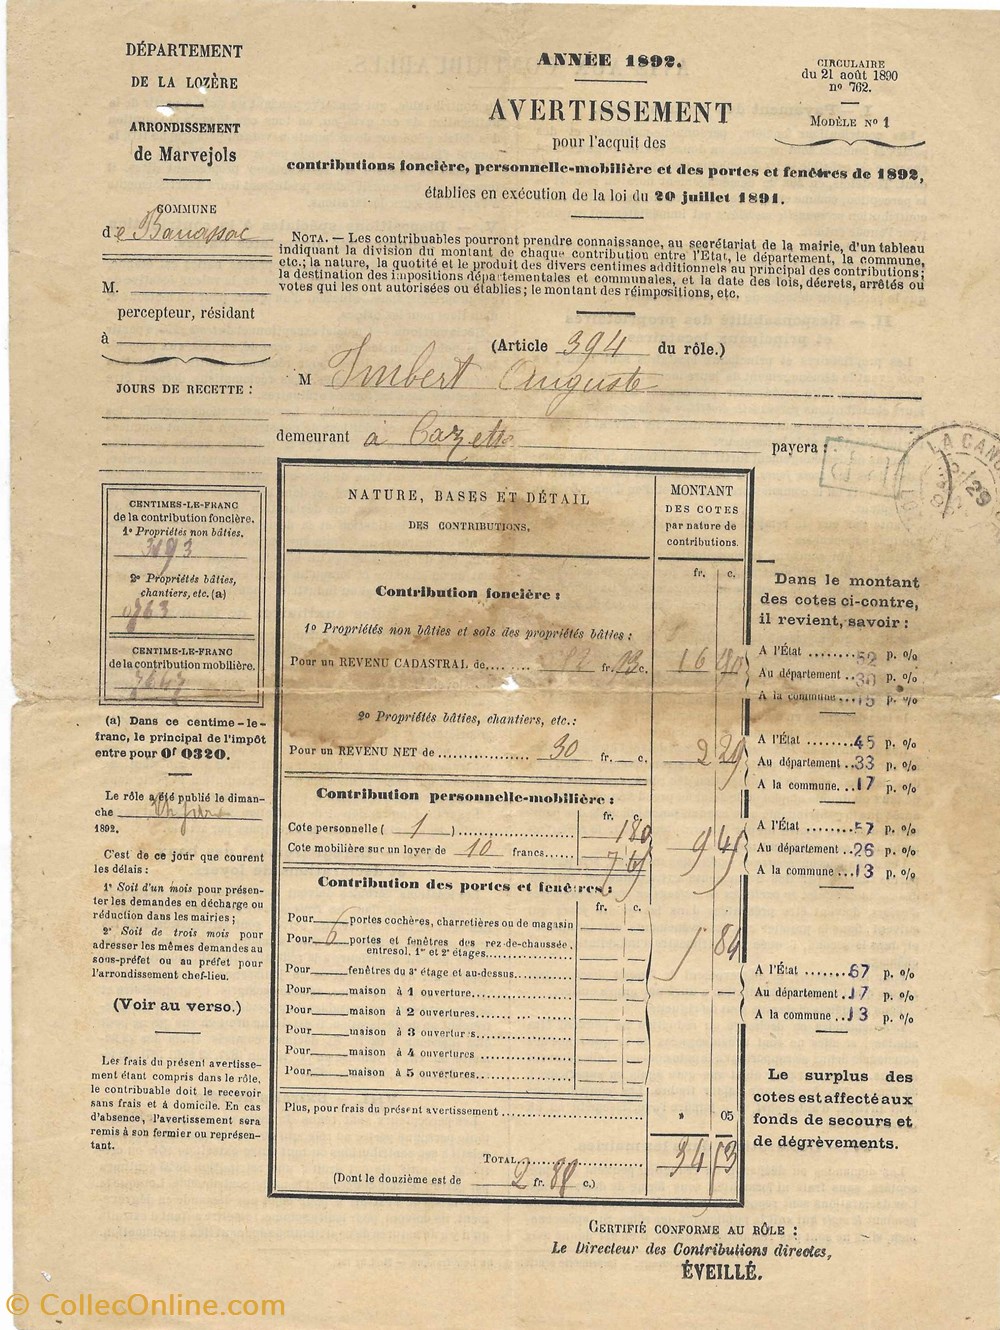 DÉPARTEMENT
DE LA LOZÈRE
ARRONDISSEMENT
de Marvejols
COMMUNE
de Banassac
M.
percepteur, résidant
à
JOURS DE RECETTE :
CENTIMES-LE-FRANC
de la contribution foncière.
1º Propriétés non bâties.
2º Propriétés bâties,
chantiers, etc. (a)
0863
CENTIME-LE-FRANC
de la contribution mobilière.
(a) Dans ce centime-le-
franc, le principal de l'impôt
entre pour 0f 0320.
Le rôle a été publié le diman-
che
1892.
C'est de ce jour que courent
les délais :
1º Soit d'un mois pour présen-
ter les demandes en décharge ou
réduction dans les mairies ;
2º Soit de trois mois pour
adresser les mêmes demandes au
sous-préfet ou au préfet pour
l'arrondissement chef-lieu.
(Voir au verso.)
Les frais du présent avertisse-
ment étant compris dans le rôle,
le contribuable doit le recevoir
sans frais et à domicile. En cas
d'absence, l'avertissement sera
remis à son fermier ou représen-
tant.
ANNÉE 1892.
AVERTISSEMENT
pour l'acquit des
contributions foncière, personnelle-mobilière et des portes et fenêtres de 1892,
établies en exécution de la loi du 20 juillet 1891.
CIRCULAIRE
du 21 août 1890
nº 762.
MODÈLE Nº 1
NOTA. — Les contribuables pourront prendre connaissance, au secrétariat de la mairie, d'un tableau
indiquant la division du montant de chaque contribution entre l'Etat, le département, la commune,
etc.; la nature, la quotité et le produit des divers centimes additionnels au principal des contributions;
la destination des impositions départementales et communales, et la date des lois, décrets, arrêtés ou
votes qui les ont autorisées ou établies; le montant des réimpositions, etc.
(Article 394 du rôle.)
M Imbert Auguste
demeurant à payera :
LA CAN
29
NATURE, BASES ET DÉTAIL
DES CONTRIBUTIONS.
MONTANT
DES COTES
par nature de
contributions.
fr. c.
Contribution foncière :
1º Propriétés non bâties et sols des propriétés bâties :
Pour un REVENU CADASTRAL de........ fr. c. 16
2º Propriétés bâties, chantiers, etc.:
Pour un REVENU NET de ................ 30 fr. c. 2 29
Contribution personnelle-mobilière :
fr. c.
Cote personnelle ( 1 ).................. 1 80
Cote mobilière sur un loyer de 10 francs...... 7 65 9 45
Contribution des portes et fenêtres :
fr. c.
Pour portes cochères, charretières ou de magasin
Pour 6 portes et fenêtres des rez-de-chaussée,
entresol, 1er et 2e étages.................... 5 84
Pour fenêtres du 3e étage et au-dessus..............
Pour maison à 1 ouverture....................
Pour maison à 2 ouvertures....................
Pour maison à 3 ouvertures....................
Pour maison à 4 ouvertures ....................
Pour maison à 5 ouvertures....................
Plus, pour frais du présent avertissement .......................... » 05
TOTAL.......................... 34 53
(Dont le douzième est de 2 fr. 88 c.)
Dans le montant
des cotes ci-contre,
il revient, savoir :
A l'État ........52 p. º/º
Au département ..30 p. º/º
A la commune ....15 p. º/º
A l'État ........45 p. º/º
Au département ..33 p. º/º
A la commune....17 p. º/º
A l'État ........57 p. º/º
Au département..26 p. º/º
A la commune ...13 p. º/º
A l'État ........67 p. º/º
Au département .17 p. º/º
A la commune ...13 p. º/º
Le surplus des
cotes est affecté aux
fonds de secours et
de dégrèvements.
CERTIFIÉ CONFORME AU RÔLE :
Le Directeur des Contributions directes,
ÉVEILLÉ.
© CollecOnline.com